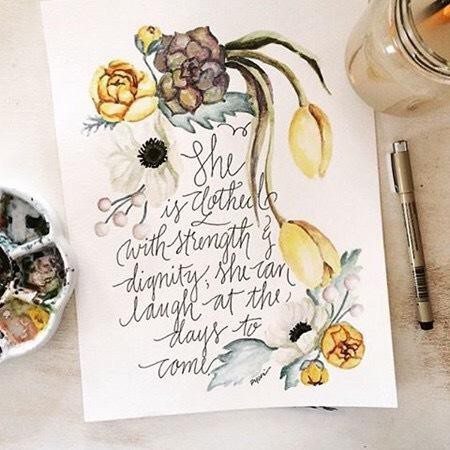 She
is clothed
with strength &
dignity; she can
laugh at the
days to
come